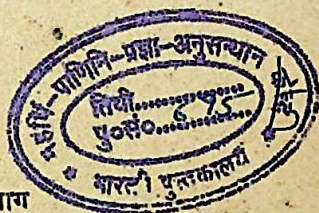 महर्षि-पाणिनि-प्रज्ञा-अनुसन्धान
तिथी..................
पु०सं०...695......
भारती पुस्तकालय
ाग